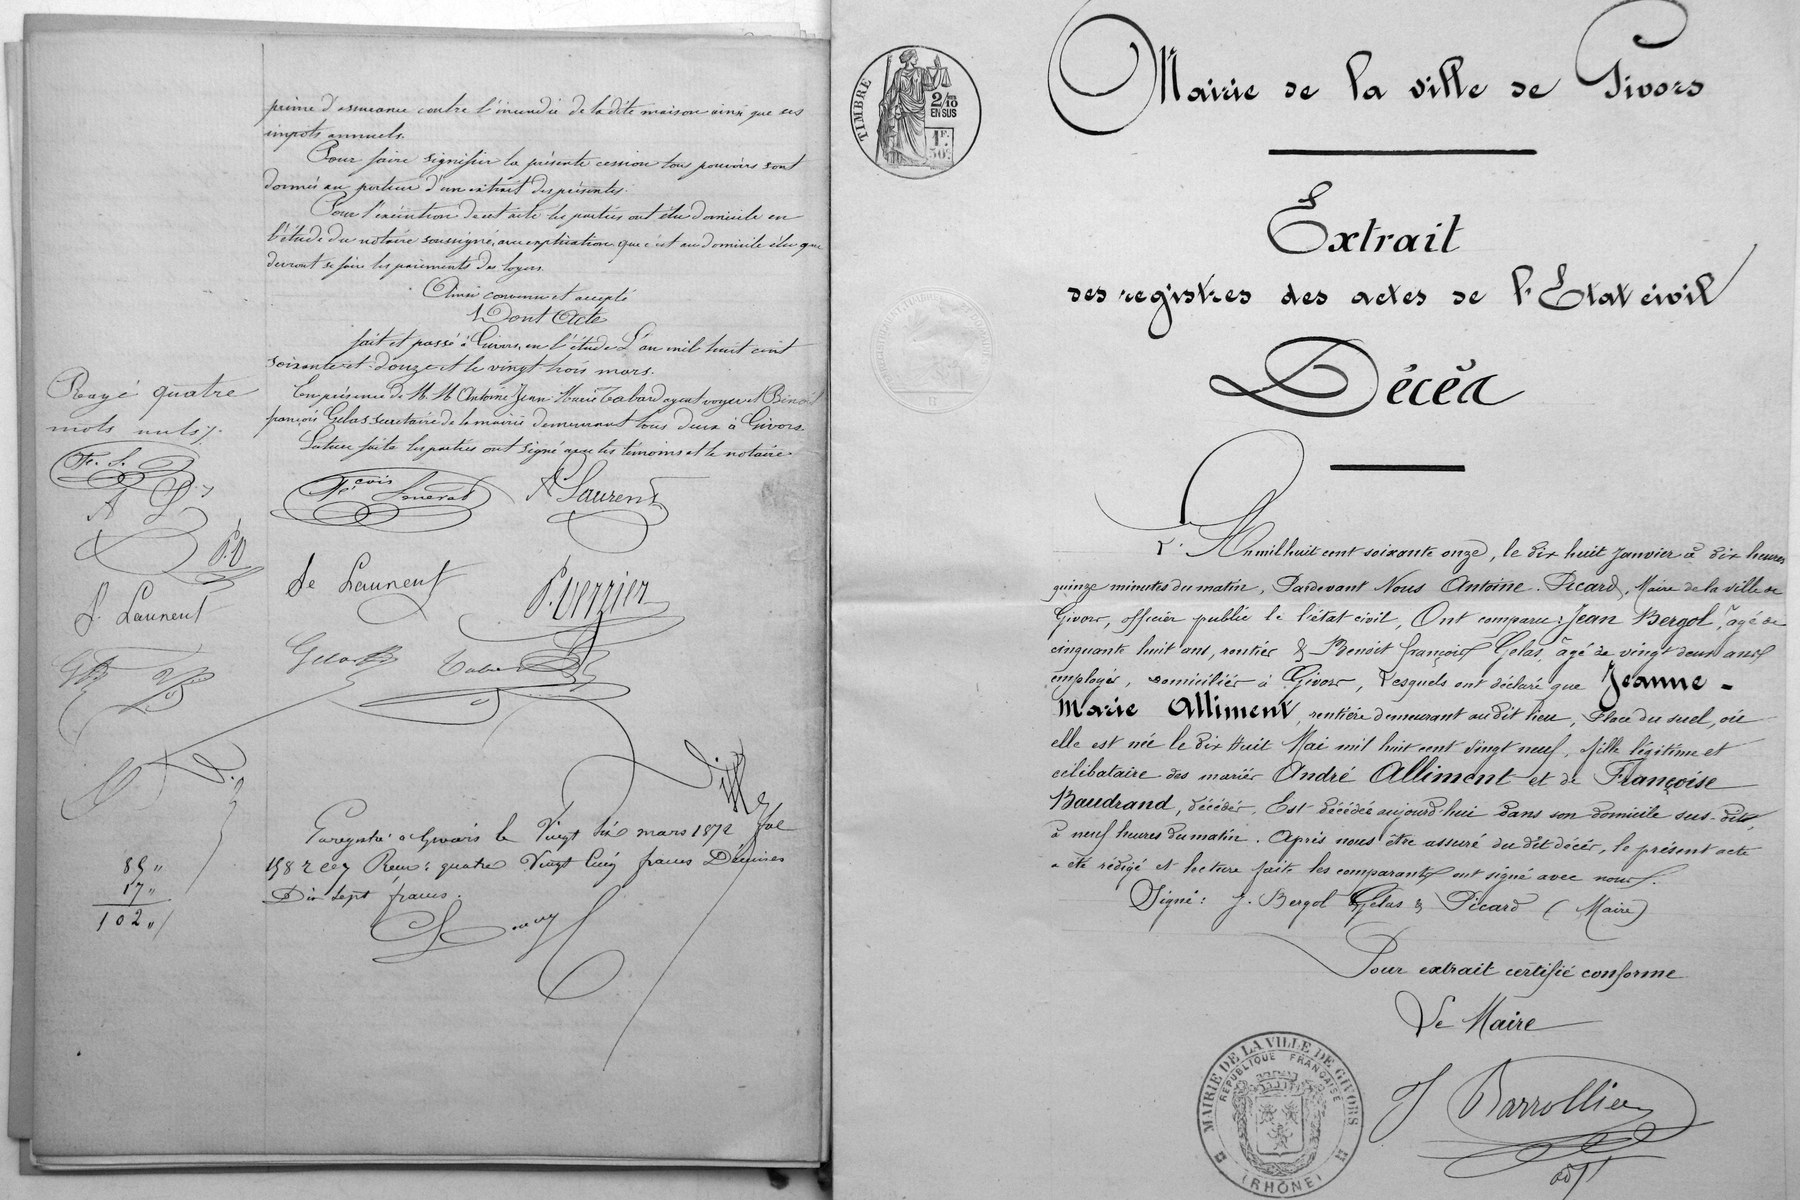 prime d'assurance contre l'incendie de la dite maison ainsi que ses
impots annuels.
Pour faire signifier la présente cession tous pouvoirs sont
donnés au porteur d'un extrait des présentes.
Pour l'exécution de cet acte les parties ont élu domicile en
l'étude du notaire soussigné, avec explication que c'est au domicile élu que
devront se faire les paiements des loyers.
Ainsi convenu et accepté
Dont Acte
fait et passé à Givors, en l'étude L'an mil huit cent
soixante et douze et le vingt trois mars.
En présence de M. M. Antoine Jean Marie Tabard agent voyer et Benoit
françois Gelas secrétaire de la mairie demeurant tous deux à Givors
Lecture faite les parties ont signé avec les témoins et le notaire.
Rayé quatre
mots nuls
F. S.
A L
P. V
J. Laurent
fçois A Laurent
Je Laurent P. Verzier
Gelas Tabard
Enregistré à Givors le Vingt six mars 1872 fol
158 r Reçu: quatre Vingt Cinq francs Décimes
Dix sept francs.
85 "
17 "
102 "
TIMBRE
2/10
EN SUS
1F.
50c.
Mairie de la ville de Givors
Extrait
des registres des actes de l'Etat civil
Décès
L'An mil huit cent soixante onze, le dix huit Janvier à dix heures
quinze minutes du matin, Pardevant Nous Antoine Picard, Maire de la ville de
Givors, officier public de l'état civil, Ont comparu: Jean Bergot, âgé de
cinquante huit ans, rentier & Benoit françois Gelas, âgé de vingt deux ans
employés, domiciliés à Givors, Lesquels ont déclaré que Jeanne-
Marie Alliment, rentière demeurant au dit lieu, Place du suel, où
elle est née le dix huit Mai mil huit cent vingt neuf, fille légitime et
célibataire des mariés André Alliment et de Françoise
Baudrand, décédés, Est décédée aujourd'hui dans son domicile sus-dit,
à neuf heures du matin. Après nous être assuré du dit décès, le présent acte
a été rédigé et lecture faite les comparants ont signé avec nous.
Signé: J. Bergot Gelas & Picard (Maire)
Pour extrait certifié conforme
Le Maire
J Barrollier
MAIRIE DE LA VILLE DE GIVORS
RÉPUBLIQUE FRANÇAISE
(RHÔNE)